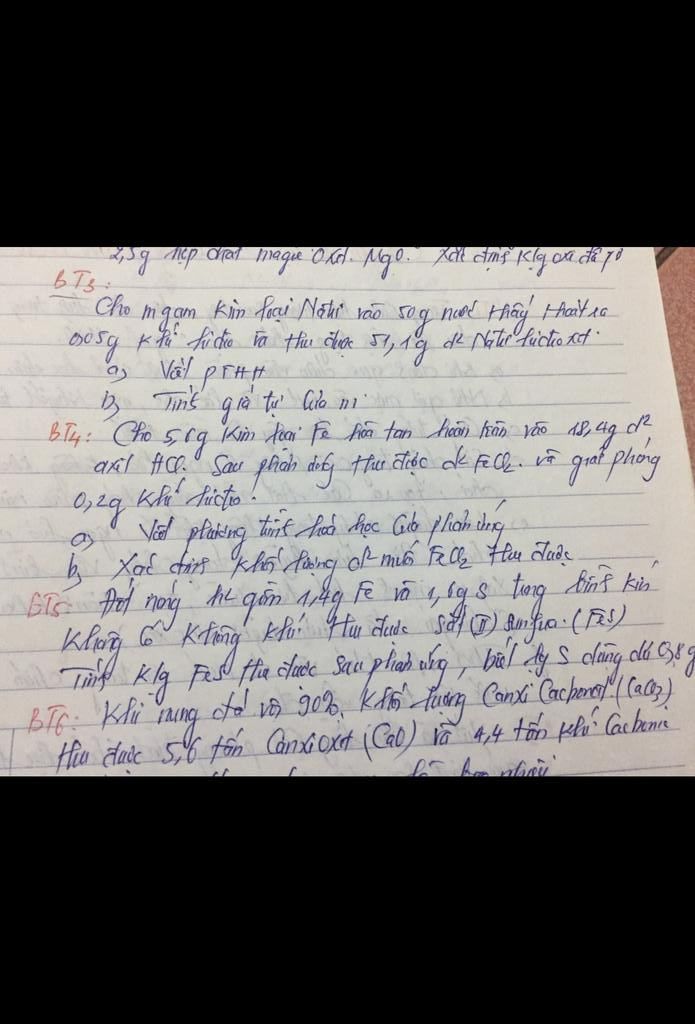 2,5g hợp chất magie Oxit. MgO. Xác định klg oxi đã
BT3:
Cho mgam kim loại Natri vào 50g nước thấy thoát ra
0,05g khí hiđro và thu được 51,1g d² Natri hiđroxit.
a, Viết PTHH
b, Tính giá trị của m.
BT4: Cho 5,6g kim loại Fe hòa tan hoàn toàn vào 18,4g d²
axit HCl. Sau phản ứng thu được d² FeCl2. và giải phóng
0,2g khí hiđro.
a, Viết phương trình hoá học của phản ứng
b, Xác định khối lượng d² muối FeCl2 thu được
BT5: Đốt nóng h² gồm 1,4g Fe và 1,6g S trong bình kín
không có không khí thu được sắt (II) sunfua. (FeS)
Tính klg FeS thu được sau phản ứng, biết lg S dùng dư 0,8g
BT6: Khi nung đá vôi 90% khối lượng Canxi Cacbonat. (CaCO3)
thu được 5,6 tấn Canxi Oxit (CaO) và 4,4 tấn khí Cacbonic